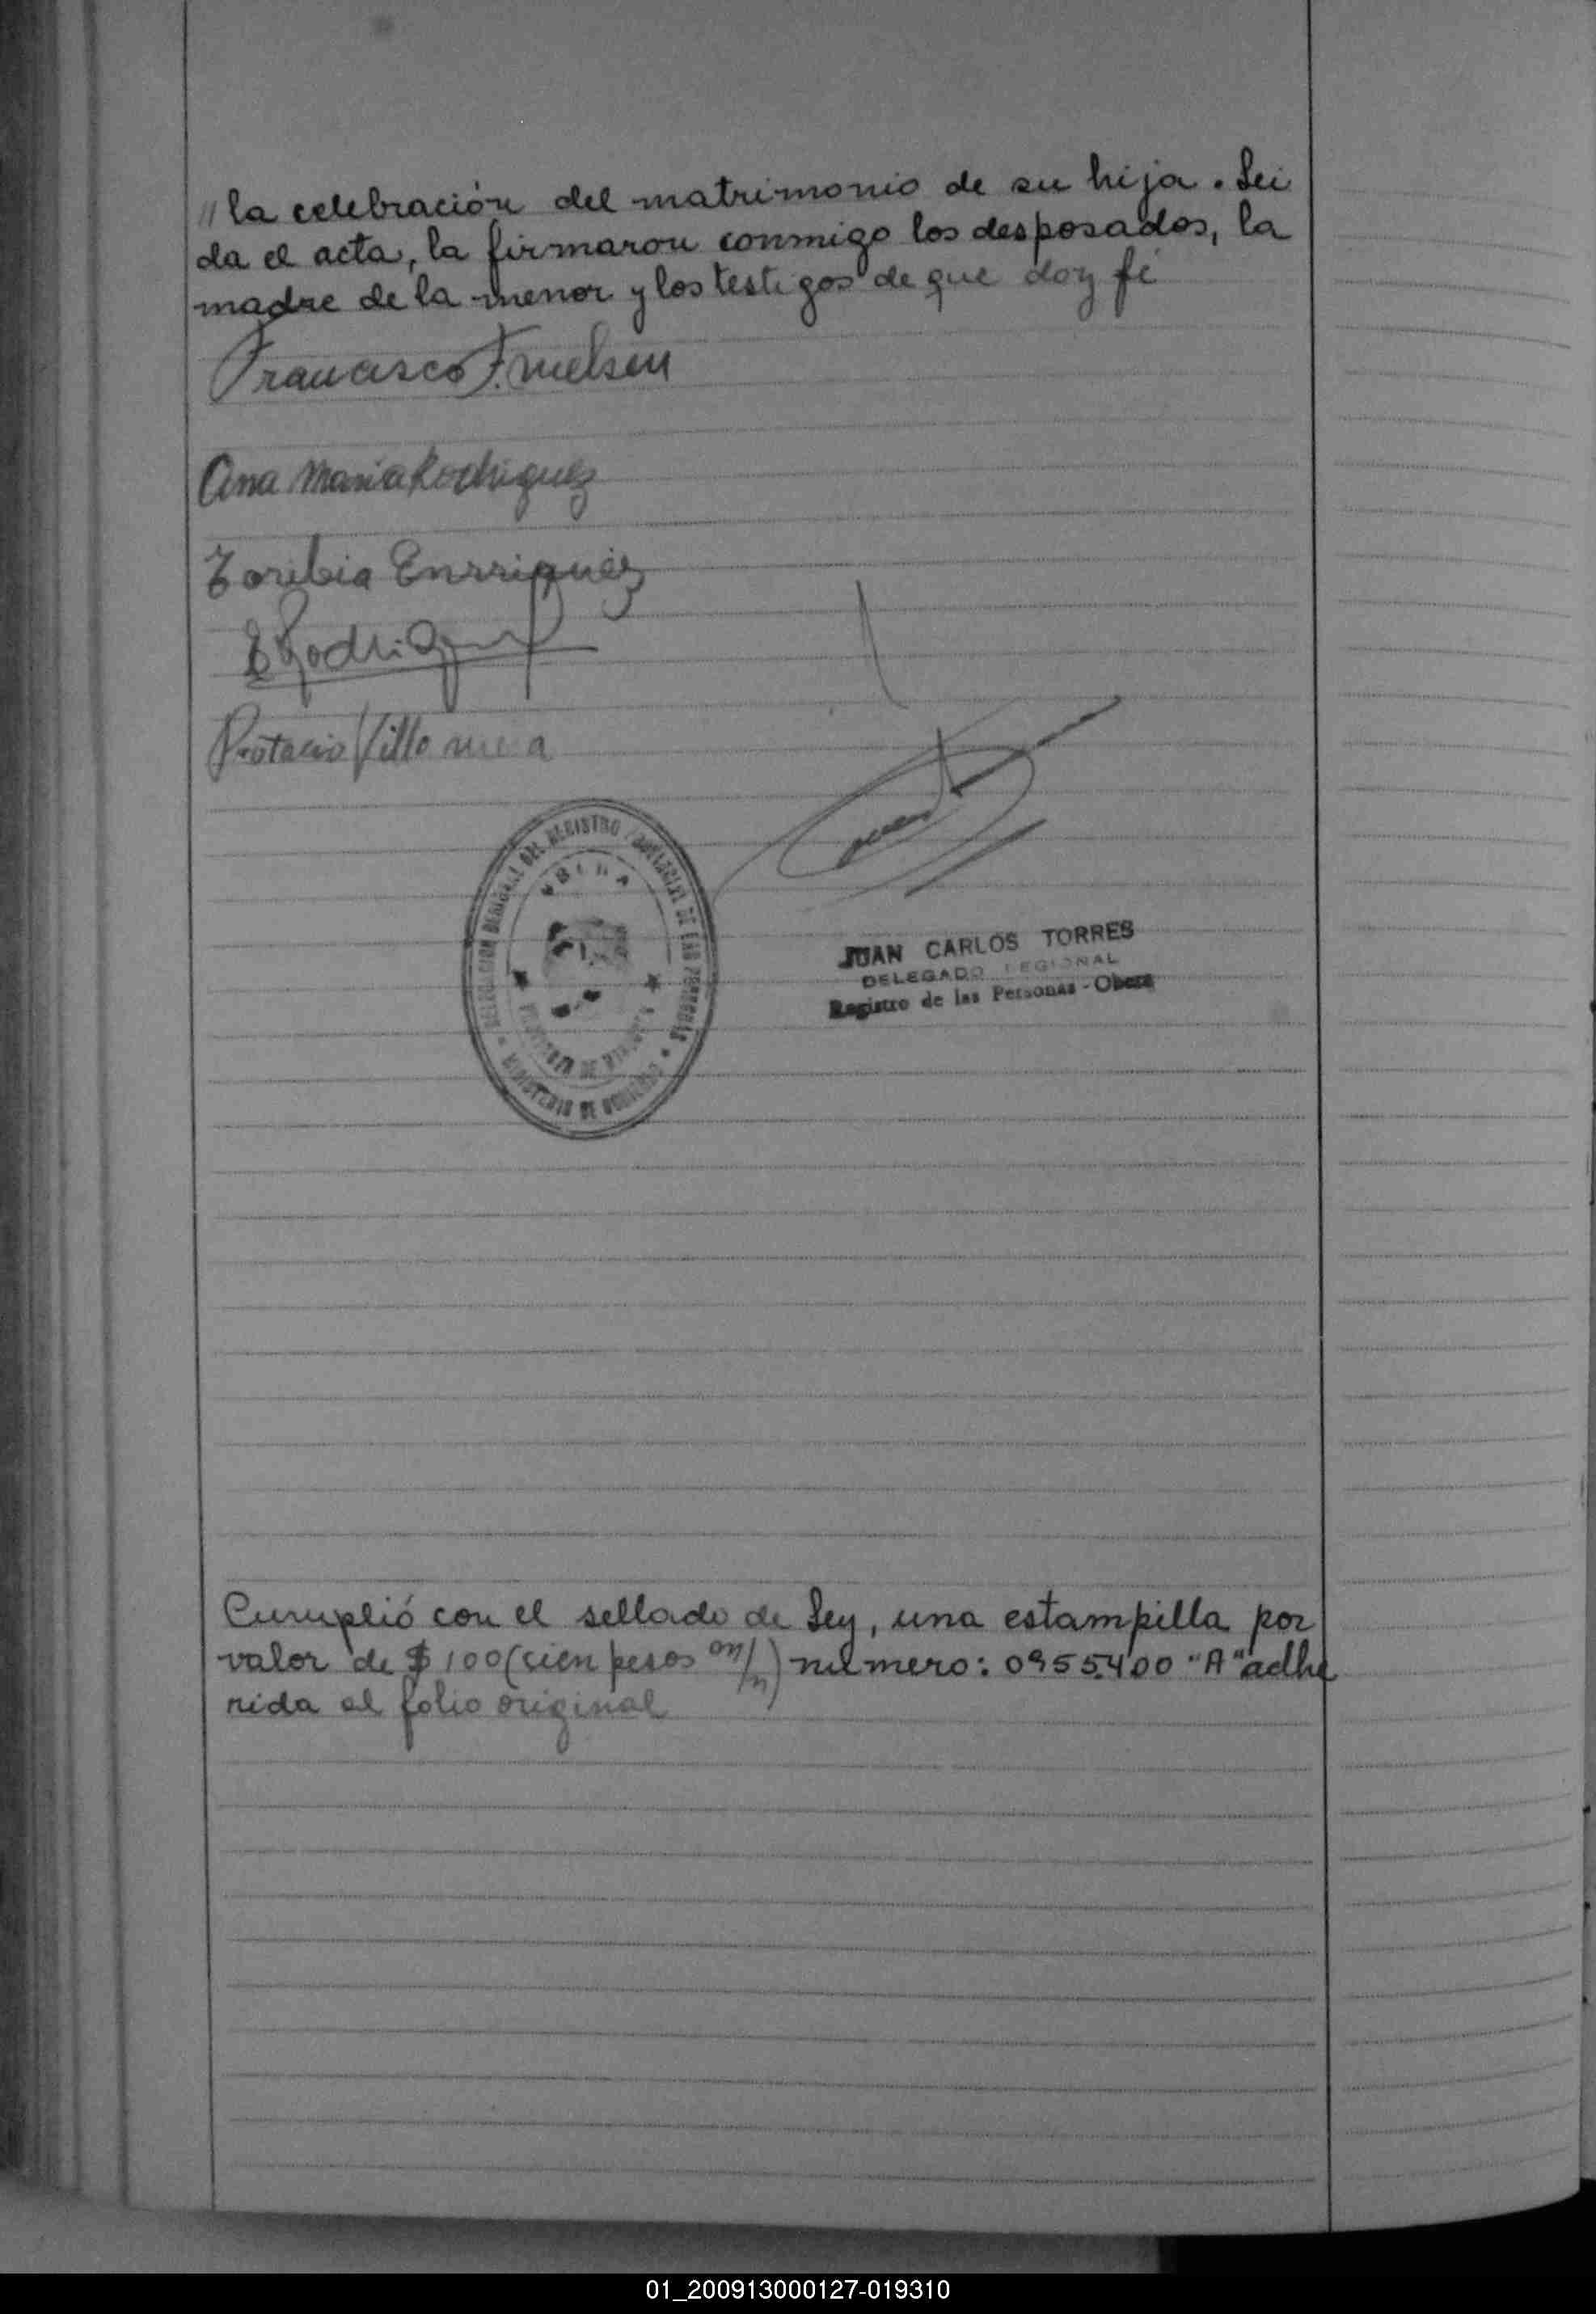 // la celebración del matrimonio de su hija. Lei
da el acta, la firmaron conmigo los desposados, la
madre de la menor y los testigos de que doy fé
Francisco F. Nielsen
Ana Maria Rodriguez
Toribia Enrriquez
E Rodriguez
Protacio Villa
DELEGACION REGIONAL DEL REGISTRO PROVINCIAL DE LAS PERSONAS
OBERA
PROVINCIA DE MISIONES
MINISTERIO DE GOBIERNO
JUAN CARLOS TORRES
DELEGADO REGIONAL
Registro de las Personas - Oberá
Cumplió con el sellado de Ley, una estampilla por
valor de $ 100 (cien pesos m/n) número: 0955400 "A" adhe
rida al folio original
01_200913000127-019310